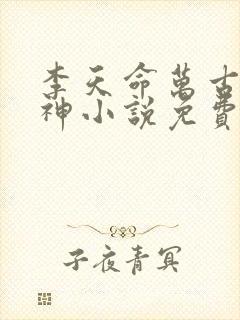 李天命萬古
神小說免費
子夜青冥